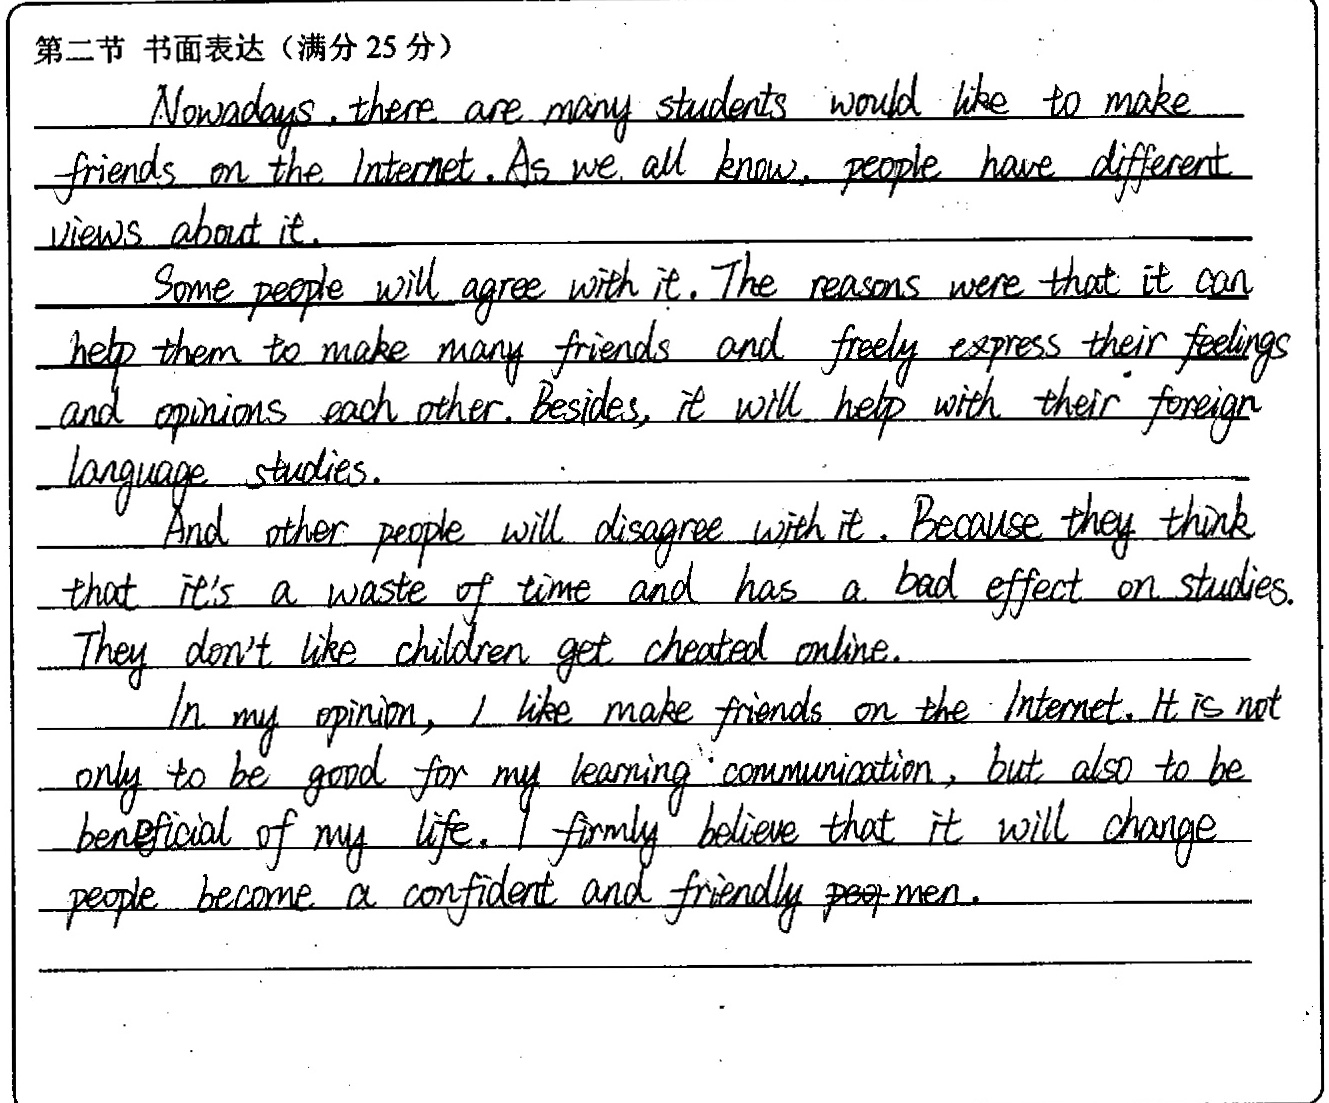 第二节 书面表达（满分 25 分）
Nowadays, there are many students would like to make
friends on the Internet. As we all know, people have different
views about it.
Some people will agree with it. The reasons were that it can
help them to make many friends and freely express their feelings
and opinions each other. Besides, it will help with their foreign
language studies.
And other people will disagree with it. Because they think
that it's a waste of time and has a bad effect on studies.
They don't like children get cheated online.
In my opinion, I like make friends on the Internet. It is not
only to be good for my learning communication, but also to be
beneficial of my life. I firmly believe that it will change
people become a confident and friendly men.